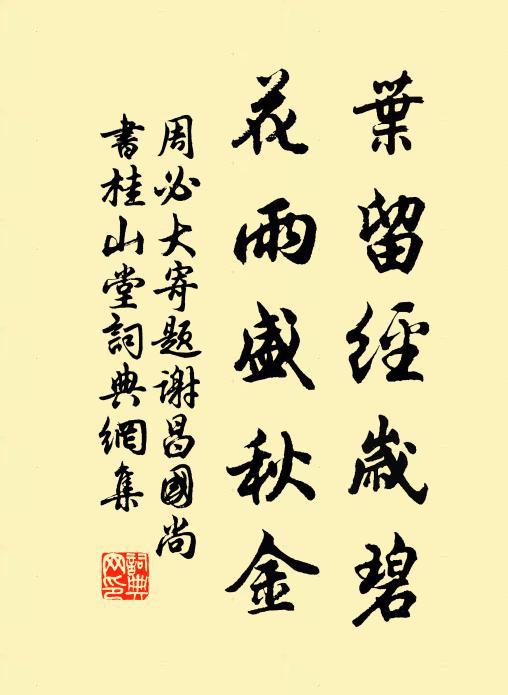 葉留經歲碧
花雨盛秋金
周必大寄題謝昌國尚
書桂山堂詞典網集
詞典
网印